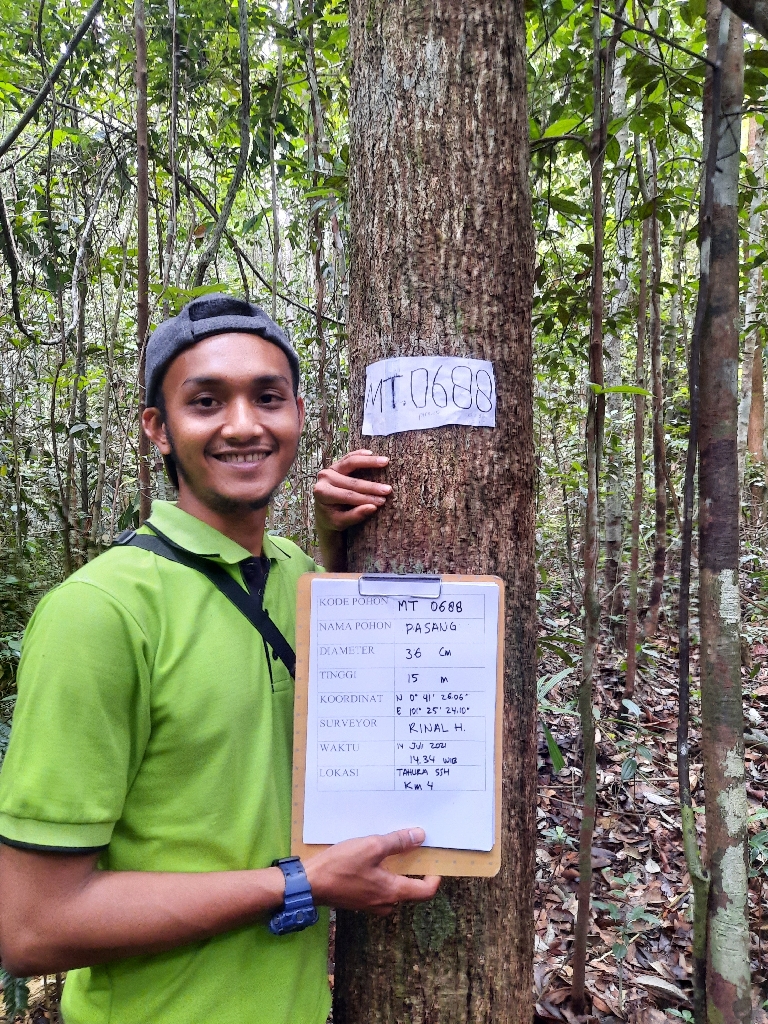 MT.0688
KODE POHON MT 0688
NAMA POHON PASANG
DIAMETER 36 Cm
TINGGI 15 m
KOORDINAT N 0° 41' 26.06"
E 101° 25' 24.10"
SURVEYOR RINAL H.
WAKTU 14 JULI 2021
14.34 WIB
LOKASI TAHURA SSH
Km 4